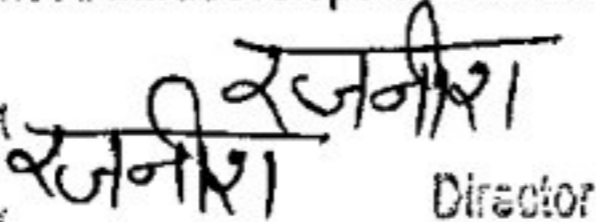 रजनीश
रजनीश
Director